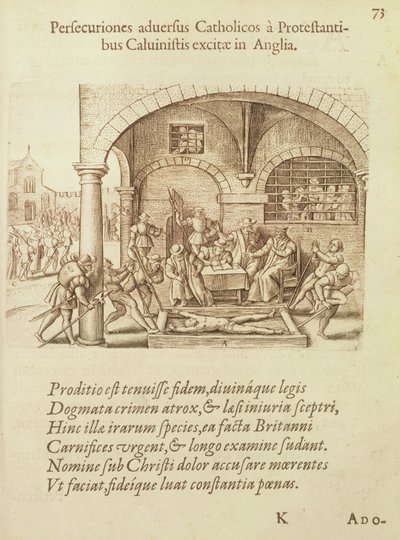 73
Perſecuriones aduerſus Catholicos à Proteſtanti-
bus Caluiniſtis excitæ in Anglia.
B
A
Proditio eſt tenuiſſe fidem, diuináque legis
Dogmata crimen atrox, & læſi iniuria ſceptri,
Hinc illæ irarum ſpecies, ea facta Britanni
Carnifices vrgent, & longo examine ſudant.
Nomine ſub Chriſti dolor accuſare mœrentes
Vt faciat, fideíque luat conſtantia pœnas.
K ADO-